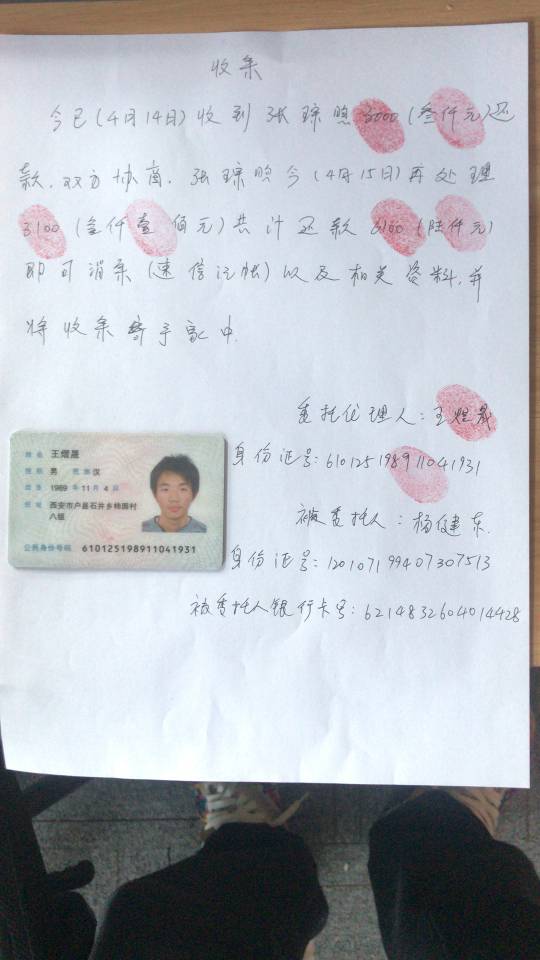 收条
今已(4月14日)收到张琼照3000(叁仟元)还
款,双方协商,张琼照今(4月15日)再处理
3100(叁仟壹佰元)共计还款6100(陆仟元)
即可消条(速信记账)以及相关资料,并
将收条寄于家中.
委托代理人:王煜晟
身份证号:610125198911041931
被委托人:杨健东.
身份证号:120107199407307513
被委托人银行卡号:6214832604014428
姓名 王煜晟
性别 男 民族 汉
出生 1989 年 11 月 4 日
住址 西安市户县石井乡柿园村
八组
公民身份号码 610125198911041931